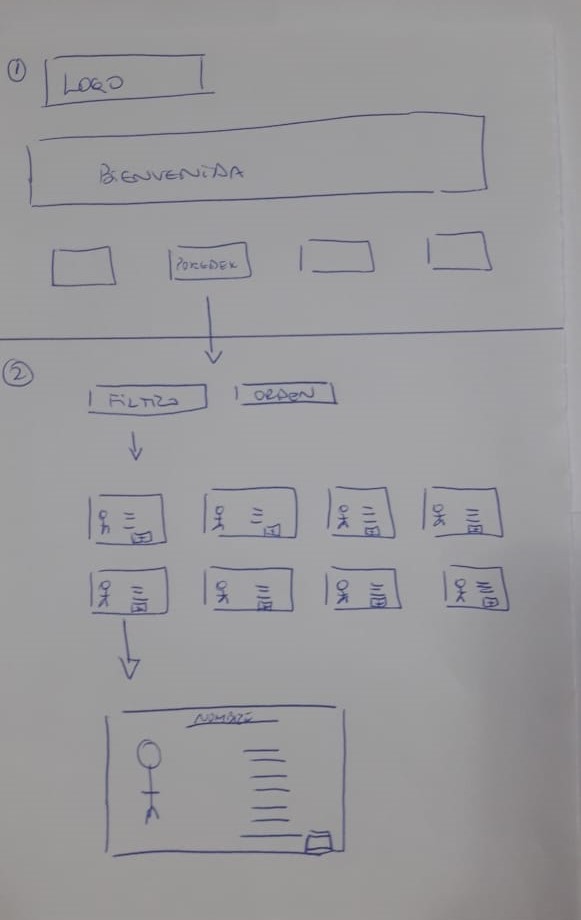 1
LOGO
BIENVENIDA
POKEDEX
2
FILTRO ORDEN
NOMBRE